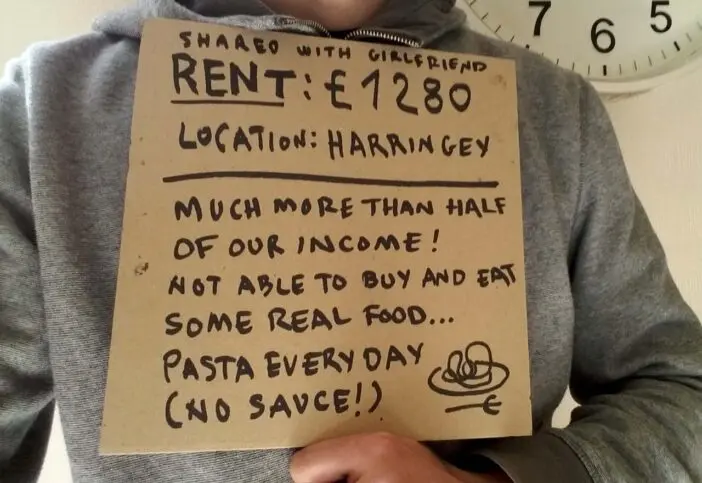 SHARED WITH GIRLFRIEND
RENT: £1280
LOCATION: HARRINGEY
MUCH MORE THAN HALF
OF OUR INCOME!
NOT ABLE TO BUY AND EAT
SOME REAL FOOD...
PASTA EVERY DAY
(NO SAUCE!)
7 6 5